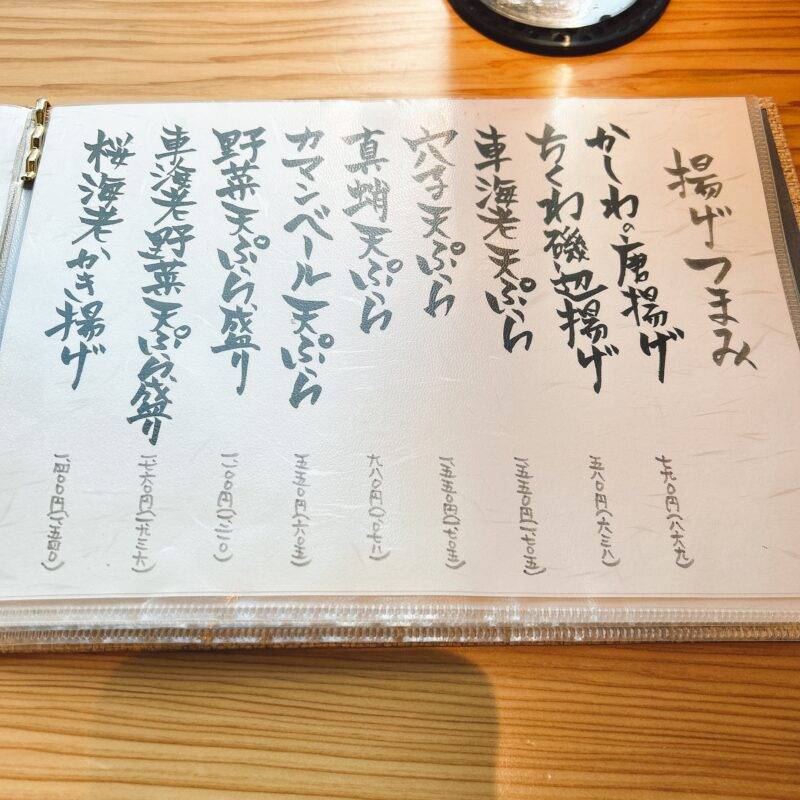 揚げつまみ
かしわの唐揚げ 七九〇円(八六九)
ちくわ磯辺揚げ 五八〇円(六三八)
車海老天ぷら 一、五五〇円(一、七〇五)
穴子天ぷら 一、五五〇円(一、七〇五)
真蛸天ぷら 九八〇円(一、〇七八)
カマンベール天ぷら 五五〇円(六〇五)
野菜天ぷら盛り 一、一〇〇円(一、二一〇)
車海老野菜天ぷら盛り 一、七六〇円(一、九三六)
桜海老かき揚げ 一、四〇〇円(一、五四〇)